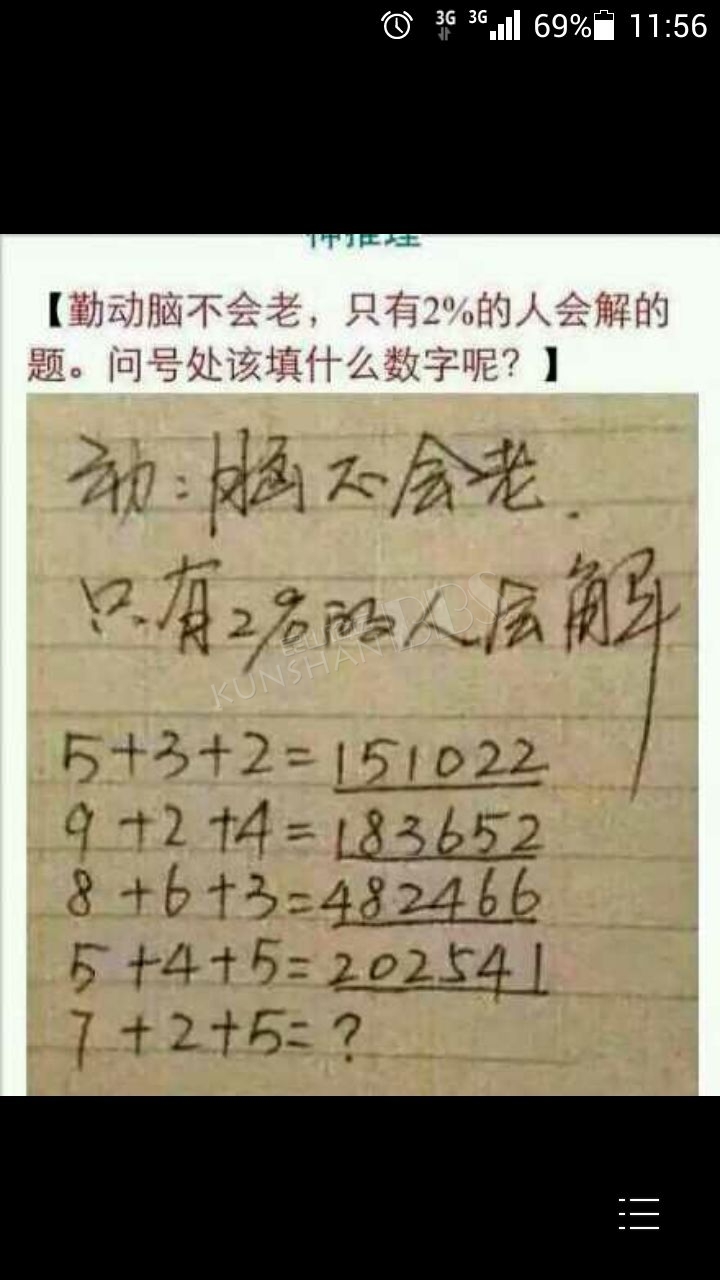 3G 3G 69% 11:56
神推理
【勤动脑不会老，只有2%的人会解的
题。问号处该填什么数字呢？】
动:脑不会老.
只有2%的人会解
KUNSHAN BBS
5+3+2=151022
9+2+4=183652
8+6+3=482466
5+4+5=202541
7+2+5=?